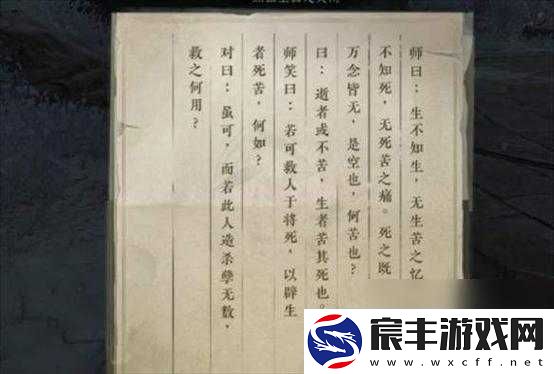 师曰：生不知生，无生苦之忆
不知死，无死苦之痛。死之既
万念皆无，是空也，何苦也？
曰：逝者或不苦，生者苦其死也。
师笑曰：若可救人于将死，以辟生
者死苦，何如？
对曰：虽可，而若此人造杀孽无数，
救之何用？
宸丰游戏网
www.wxcff.net